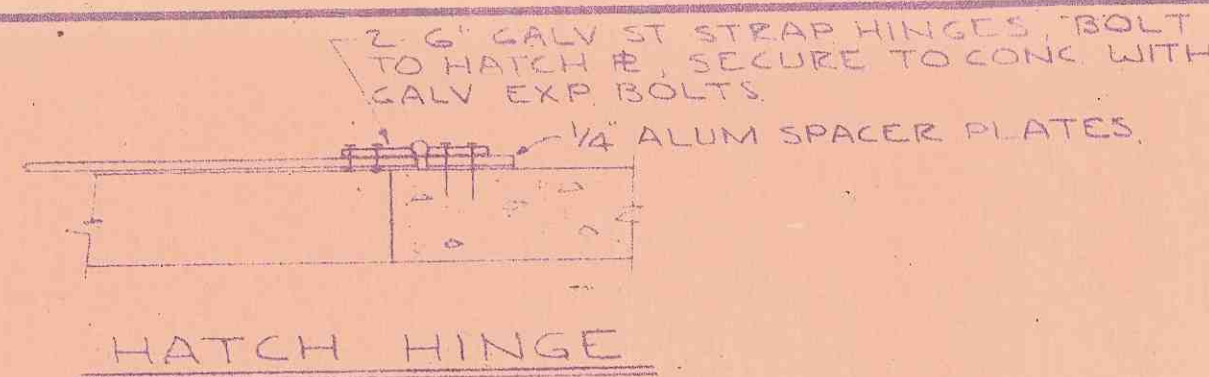 2-6" GALV ST STRAP HINGES, BOLT
TO HATCH ℄, SECURE TO CONC. WITH
GALV EXP. BOLTS.
1/4" ALUM SPACER PLATES.
HATCH HINGE